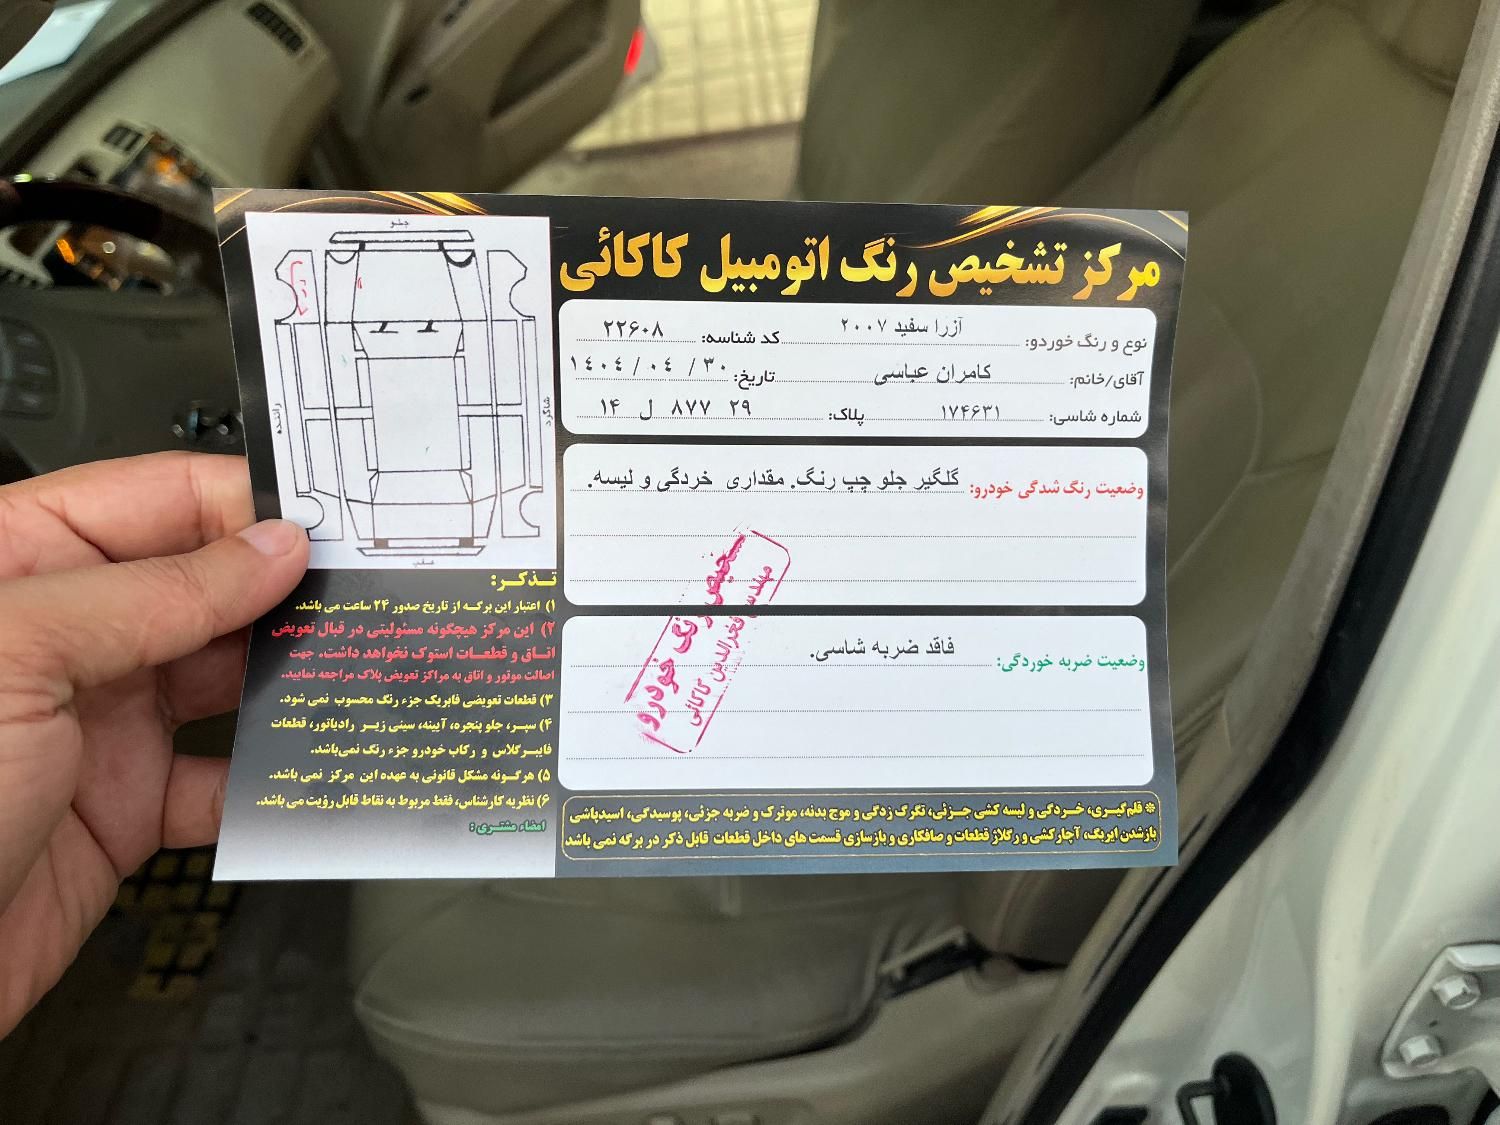 مرکز تشخیص رنگ اتومبیل کاکائی
نوع و رنگ خودرو: آزرا سفید ۲۰۰۷ کد شناسه: ۲۲۶۰۸
آقای/خانم: کامران عباسی تاریخ: ۱۴۰۴/۰۴/۳۰
شماره شاسی: ۱۷۴۶۳۱ پلاک: ۲۹ ۸۷۷ ل ۱۴
وضعیت رنگ شدگی خودرو: گلگیر جلو چپ رنگ. مقداری خردگی و لیسه.
وضعیت ضربه خوردگی: فاقد ضربه شاسی.
تشخیص رنگ خودرو
مهندس فخرالدین کاکائی
* قلم‌گیری، خردگی و لیسه کشی جزئی، تگرگ زدگی و موج بدنه، موترک و ضربه جزئی، پوسیدگی، اسیدپاشی
بازشدن ایربگ، آچارکشی و رگلاژ قطعات و صافکاری و بازسازی قسمت های داخل قطعات قابل ذکر در برگه نمی باشد
جلو
راننده
شاگرد
عقب
تذکر:
۱) اعتبار این برگه از تاریخ صدور ۲۴ ساعت می باشد.
۲) این مرکز هیچگونه مسئولیتی در قبال تعویض
اتاق و قطعات استوک نخواهد داشت. جهت
اصالت موتور و اتاق به مراکز تعویض پلاک مراجعه نمایید.
۳) قطعات تعویضی فابریک جزء رنگ محسوب نمی شود.
۴) سپر، جلو پنجره، آیینه، سینی زیر رادیاتور، قطعات
فایبرگلاس و رکاب خودرو جزء رنگ نمی‌باشد.
۵) هرگونه مشکل قانونی به عهده این مرکز نمی باشد.
۶) نظریه کارشناس، فقط مربوط به نقاط قابل رؤیت می باشد.
امضاء مشتری: